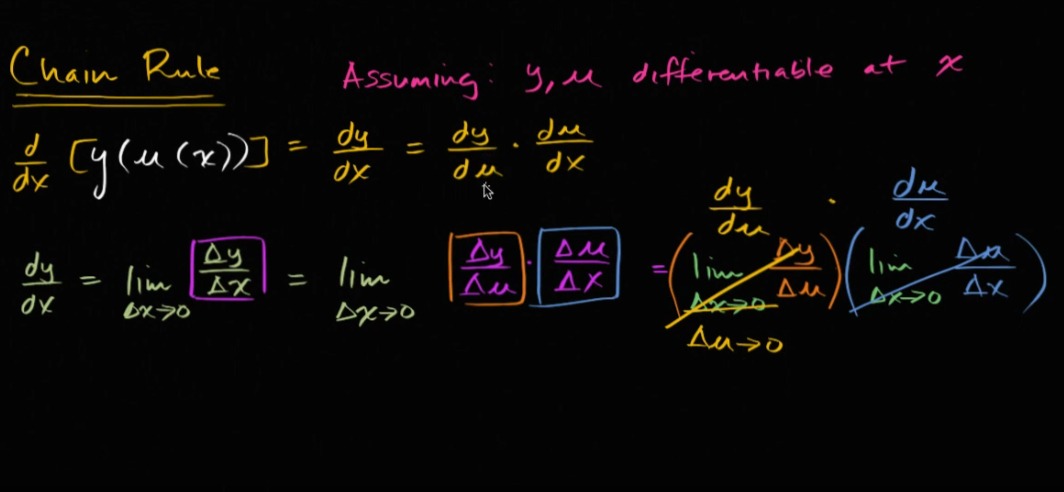 Chain Rule
Assuming: y, u differentiable at x
d/dx [y(u(x))] = dy/dx = dy/du · du/dx
dy/du · du/dx
dy/dx = lim Δx→0 Δy/Δx = lim Δx→0 Δy/Δu · Δu/Δx = (lim Δx→0 Δy/Δu)(lim Δx→0 Δu/Δx)
Δu→0